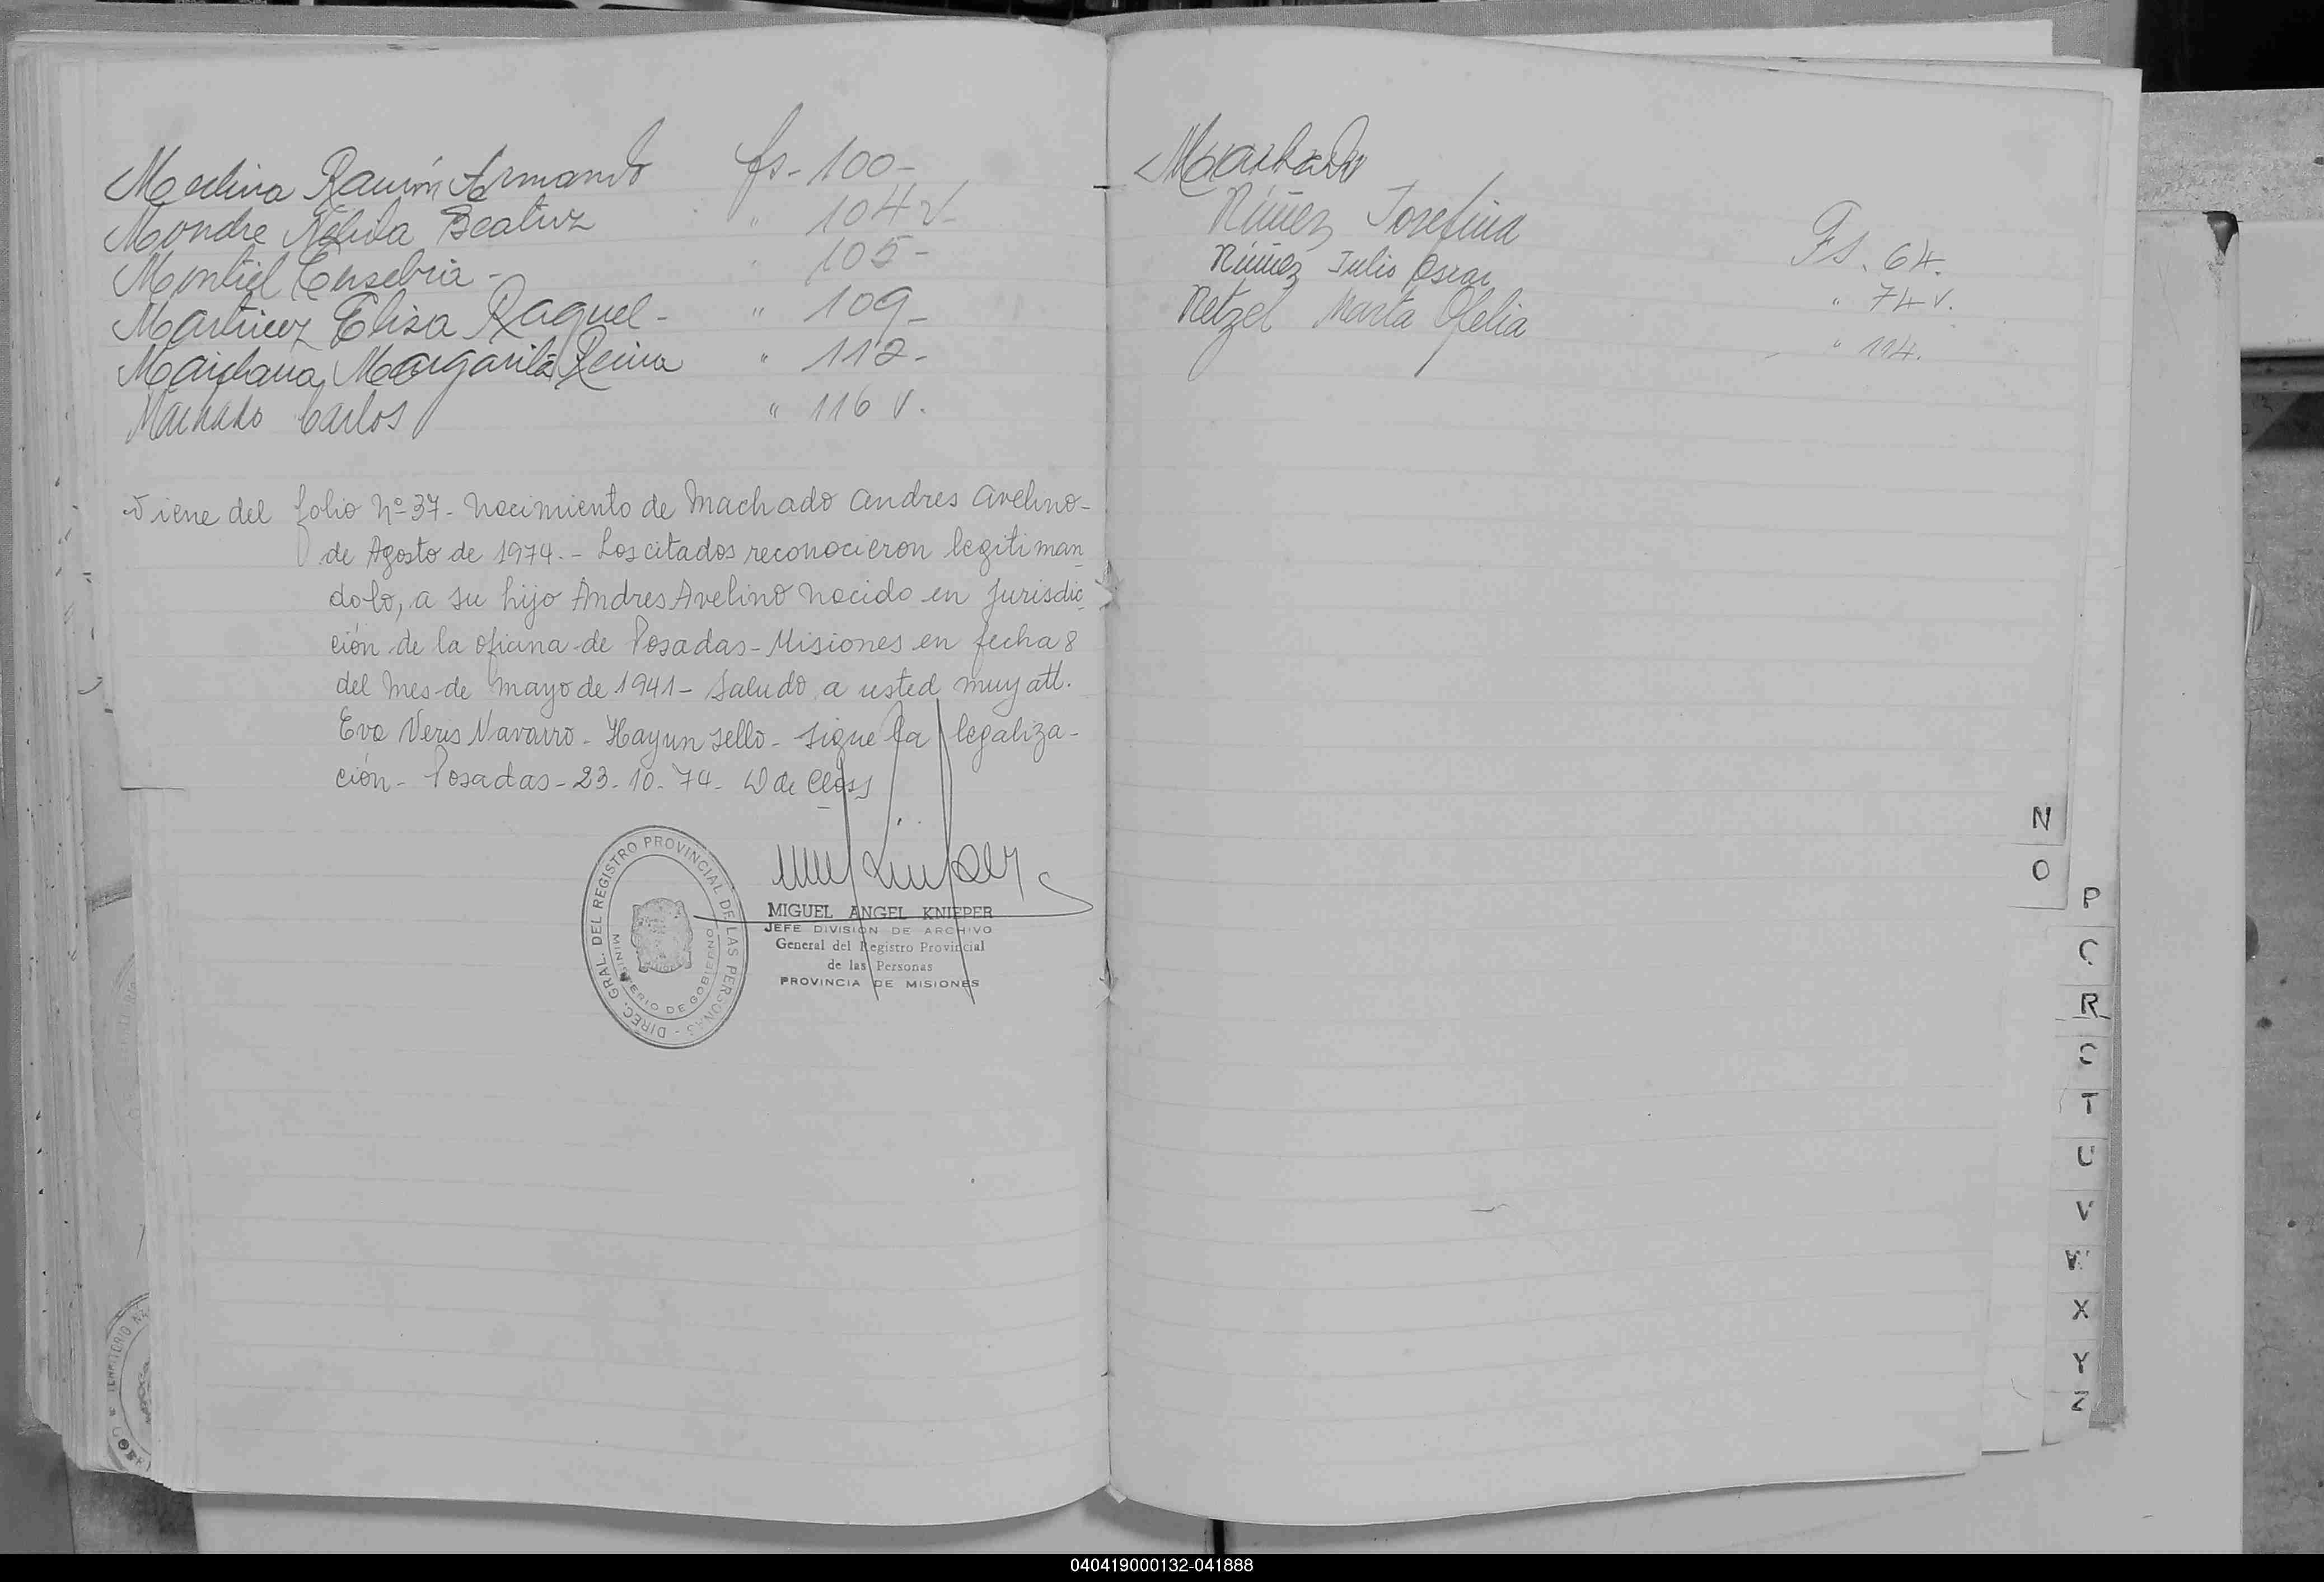 Medina Ramón Armando fs. 100-
Mondre Nélida Beatriz " 104 v-
Montiel Eusebia - " 105-
Martinez Elisa Raquel - " 109-
Maidana Margarita Reina " 112-
Machado Carlos " 116 v.
Viene del folio Nº 37- Nacimiento de Machado Andres Avelino-
de Agosto de 1974.- Los citados reconocieron legitiman
dolo, a su hijo Andres Avelino nacido en jurisdic
ción de la oficina de Posadas-Misiones en fecha 8
del mes de mayo de 1941- Saludo a usted muy att.
Eva Neris Navarro- Hay un sello- sigue la legaliza-
ción- Posadas-23-10-74- W de Closs
DIREC. GRAL. DEL REGISTRO PROVINCIAL DE LAS PERSONAS -
MINISTERIO DE GOBIERNO
MIGUEL ANGEL KNIEPER
JEFE DIVISION DE ARCHIVO
General del Registro Provincial
de las Personas
PROVINCIA DE MISIONES
Machado
Núñez Josefina Fs. 64.
Núñez Julio Oscar " 74 v.
Netzel Marta Ofelia " 114.
N
O
P
R
T
U
V
W
X
Y
Z
040419000132-041888